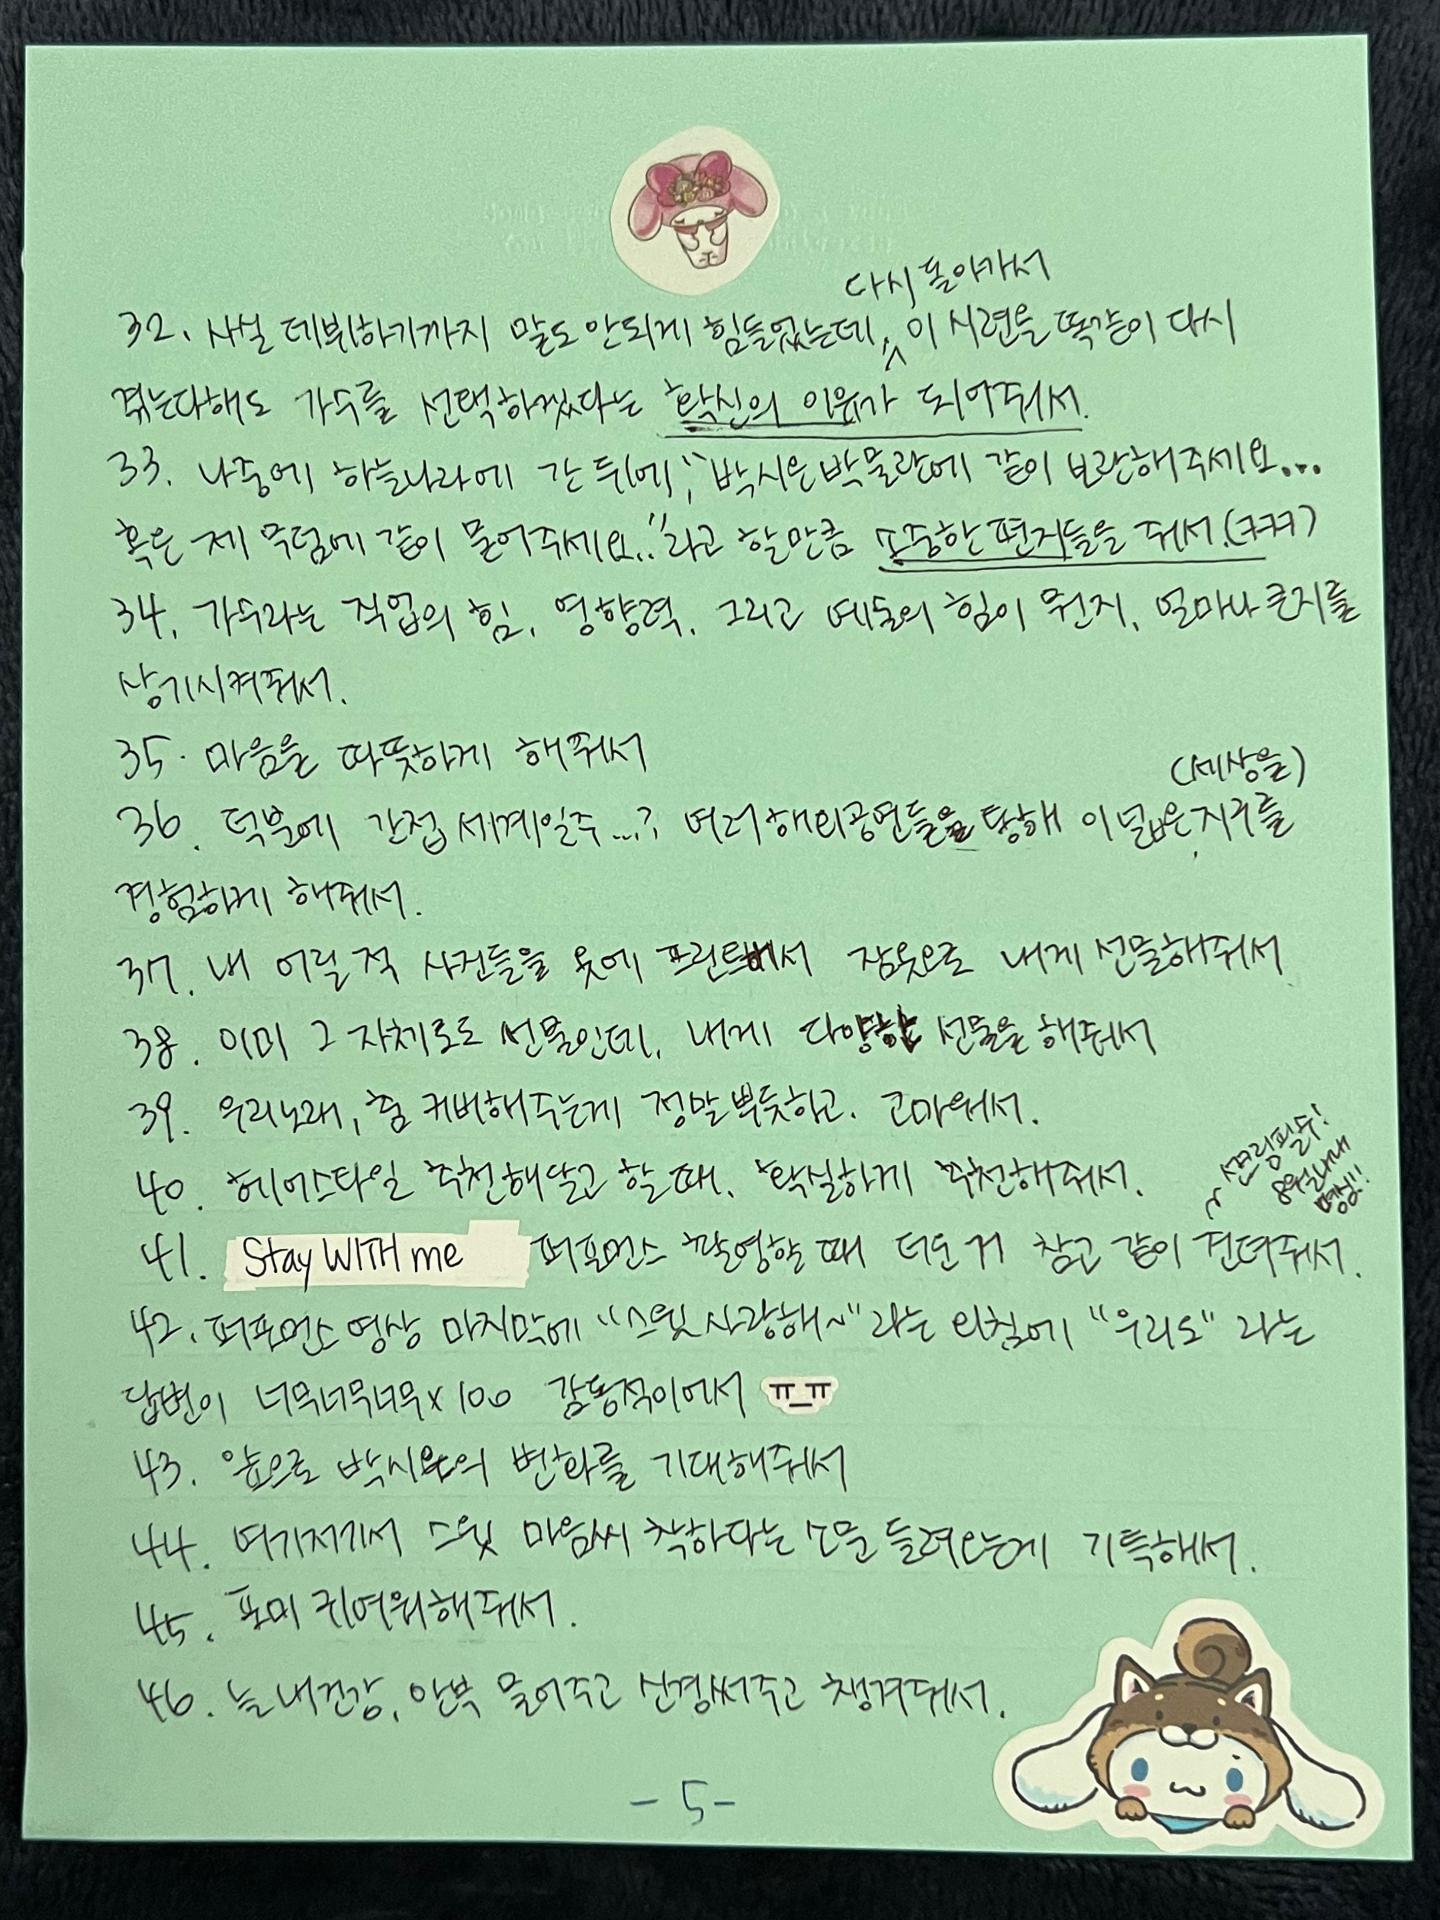 다시 돌아가서
32. 사실 데뷔하기까지 말도 안되게 힘들었는데, 이 시련을 똑같이 다시
겪는다해도 가수를 선택하겠다는 확신의 이유가 되어줘서.
33. 나중에 하늘나라에 간 뒤에, "박시은박물관에 같이 보관해주세요...
혹은 제 무덤에 같이 묻어주세요.."라고 할만큼 소중한 편지들을 줘서.(ㅋㅋㅋ)
34. 가수라는 직업의 힘, 영향력, 그리고 말의 힘이 뭔지, 얼마나 큰지를
상기시켜줘서.
35. 마음을 따뜻하게 해줘서
(세상을)
36. 덕분에 간접 세계일주...? 여러해외공연들을 통해 이 넓은 지구를
경험하게 해줘서.
37. 내 어릴 적 사진들을 옷에 프린트해서 잠옷으로 내게 선물해줘서
38. 이미 그 자체로도 선물인데, 내게 다양한 선물을 해줘서
39. 우리노래, 춤 커버해주는게 정말 뿌듯하고. 고마워서.
40. 헤어스타일 추천해달고 할 때, 확실하게 추천해줘서.
~ 썬크림필수!
8월내내
명심!!
41. Stay WITH me 퍼포먼스 촬영할 때 더운 거 참고 같이 견뎌줘서.
42. 퍼포먼스 영상 마지막에 "스윗 사랑해~"라는 외침에 "우리도" 라는
답변이 너무너무너무x100 감동적이어서 ㅠ_ㅠ
43. 앞으로 박시은의 변화를 기대해줘서
44. 여기저기서 스윗 마음씨 착하다는 소문 들려오는게 기특해서.
45. 포미 귀여워해줘서.
46. 늘 내건강, 안부 물어주고 신경써주고 챙겨줘서.
- 5 -